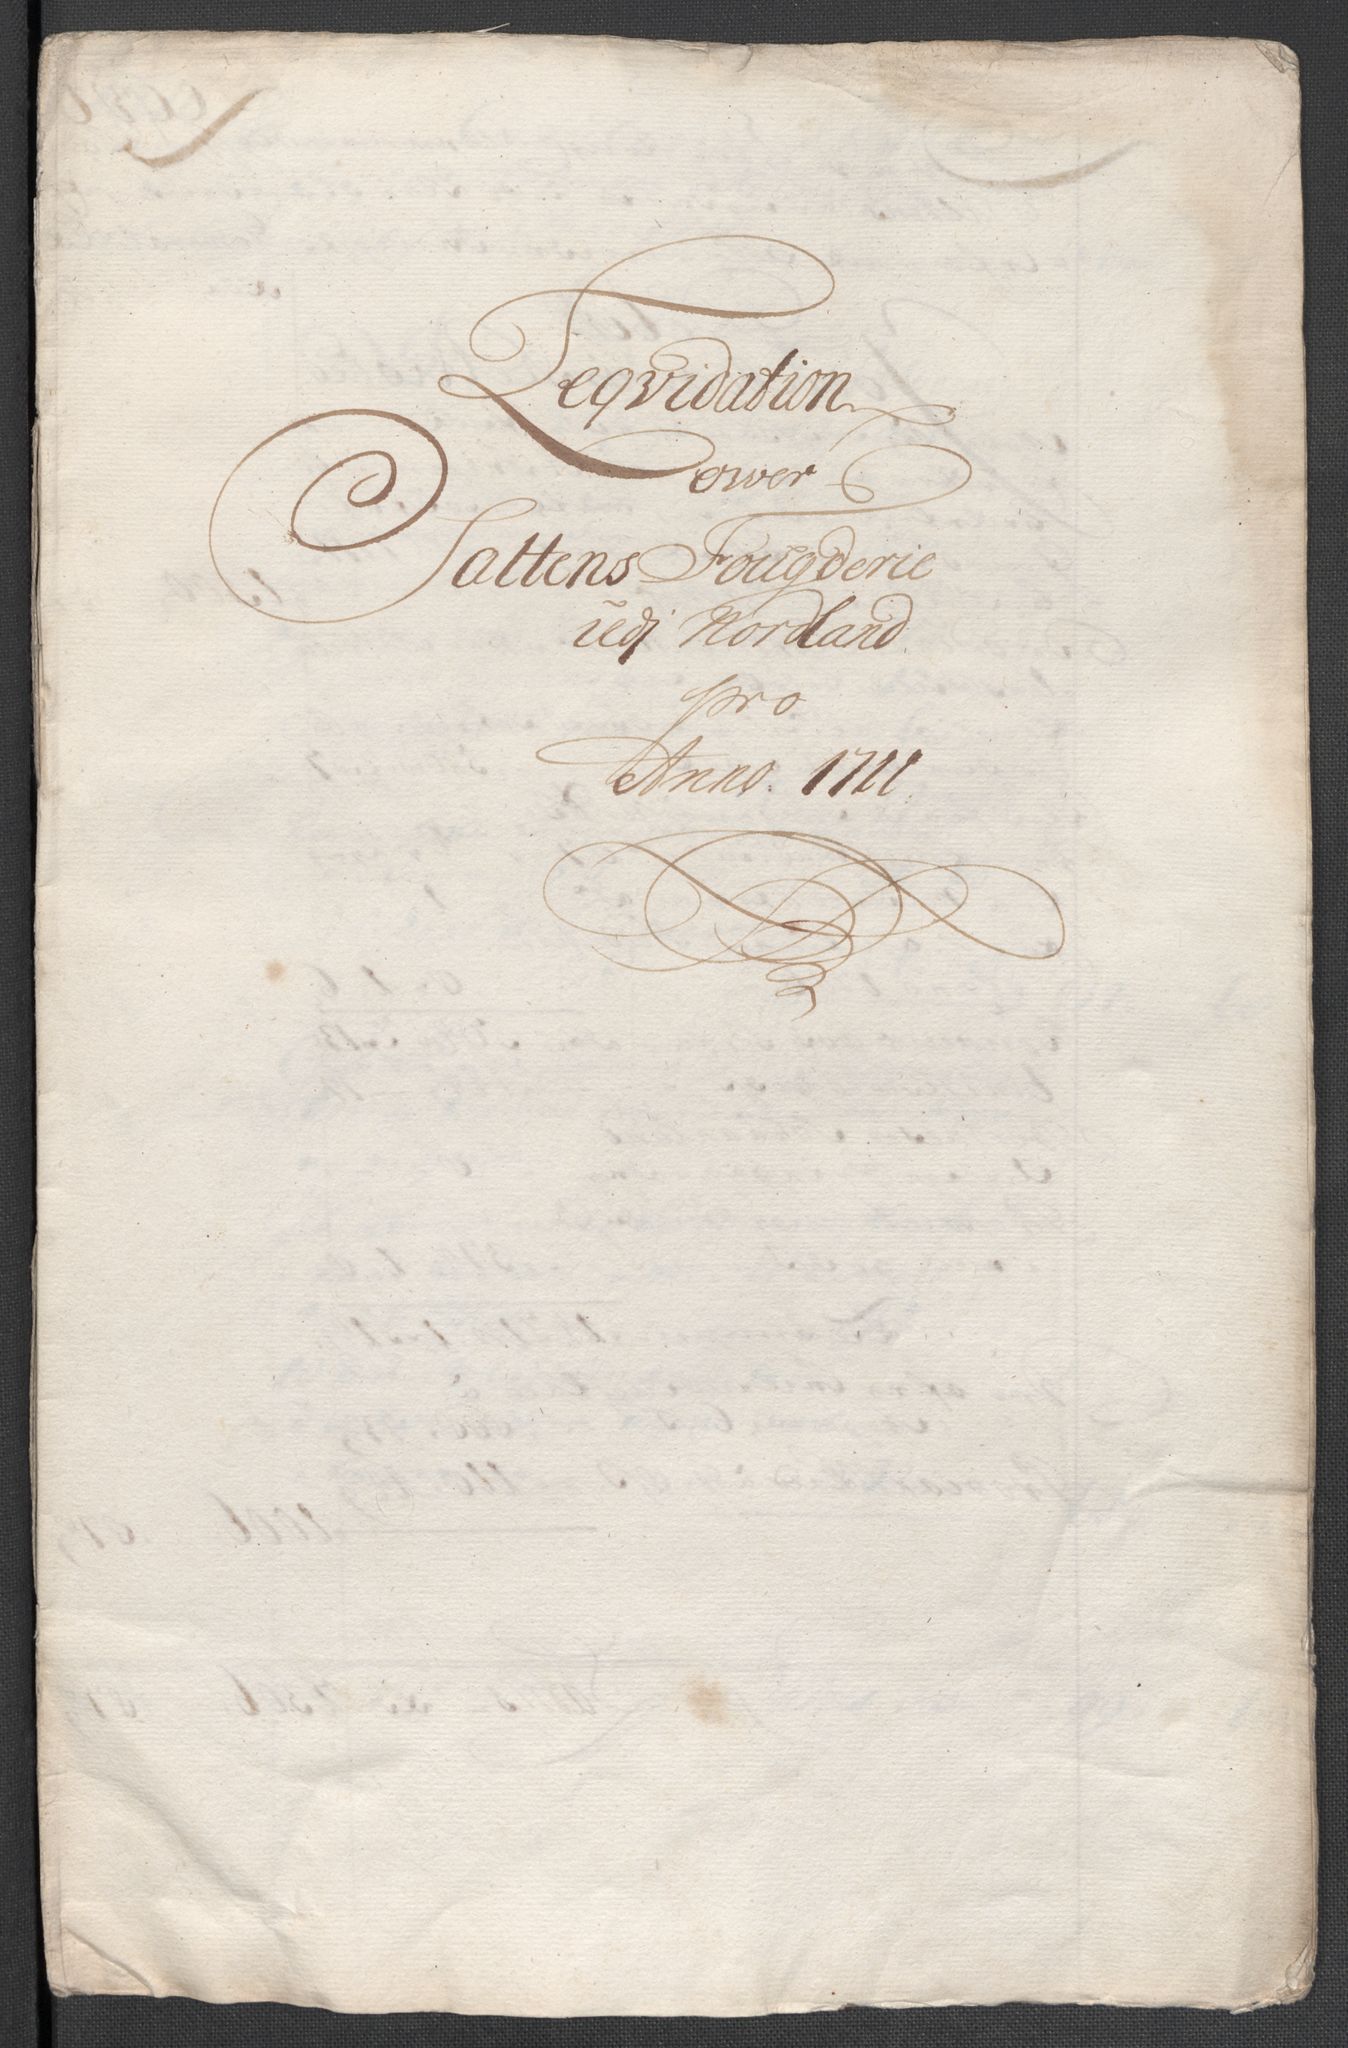 Leqvidation
ower
Saltens Fougderie
udj Nordland
pro
Anno. 1711